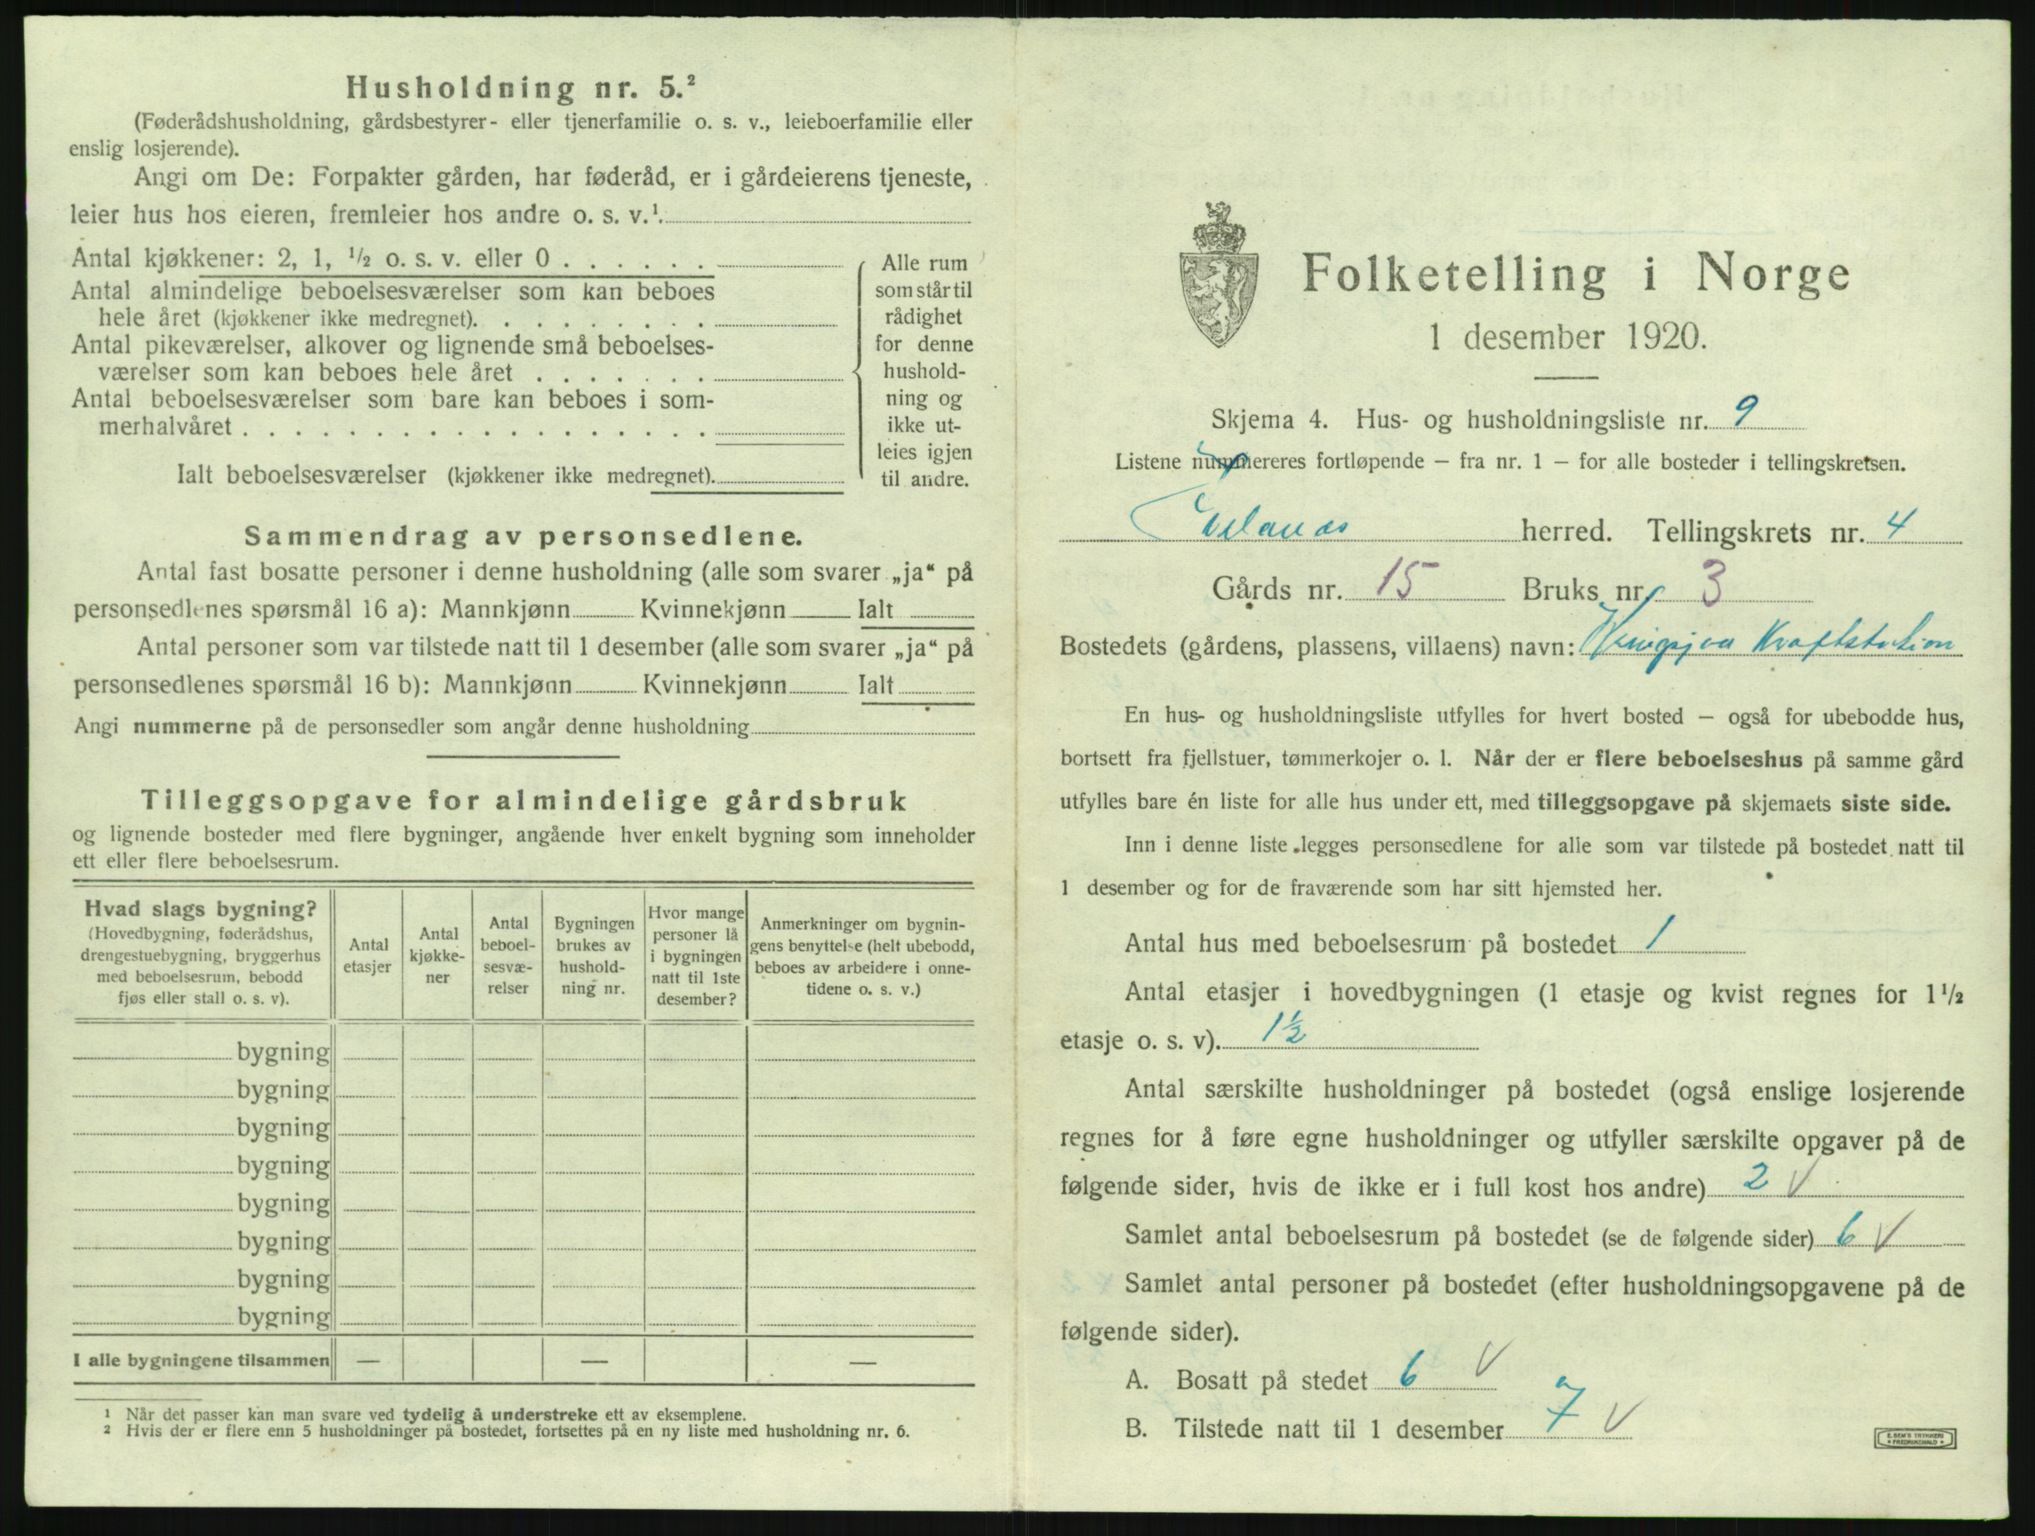 Husholdning nr. 5.²
(Føderådshusholdning, gårdsbestyrer- eller tjenerfamilie o. s. v., leieboerfamilie eller
enslig losjerende).
Angi om De: Forpakter gården, har føderåd, er i gårdeierens tjeneste,
leier hus hos eieren, fremleier hos andre o. s. v.¹.
Antal kjøkkener: 2, 1, ½ o. s. v. eller 0 . . . . . .
Antal almindelige beboelsesværelser som kan beboes
hele året (kjøkkener ikke medregnet). . . . . . . . .
Antal pikeværelser, alkover og lignende små beboelses-
værelser som kan beboes hele året . . . . . . .
Antal beboelsesværelser som bare kan beboes i som-
merhalvåret . . . . . . . . . . . . . . . . . .
Ialt beboelsesværelser (kjøkkener ikke medregnet).
Alle rum
som står til
rådighet
for denne
hushold-
ning og
ikke ut-
leies igjen
til andre.
Sammendrag av personsedlene.
Antal fast bosatte personer i denne husholdning (alle som svarer „ja“ på
personsedlenes spørsmål 16 a): Mannkjønn Kvinnekjønn Ialt
Antal personer som var tilstede natt til 1 desember (alle som svarer „ja“ på
personsedlenes spørsmål 16 b): Mannkjønn Kvinnekjønn Ialt
Angi nummerne på de personsedler som angår denne husholdning
Tilleggsopgave for almindelige gårdsbruk
og lignende bosteder med flere bygninger, angående hver enkelt bygning som inneholder
ett eller flere beboelsesrum.
Hvad slags bygning?
(Hovedbygning, føderådshus,
drengestuebygning, bryggerhus
med beboelsesrum, bebodd
fjøs eller stall o. s. v).
Antal
etasjer
Antal
kjøkke-
ner
Antal
beboel-
sesvæ-
relser
Bygningen
brukes av
hushold-
ning nr.
Hvor mange
personer lå
i bygningen
natt til 1ste
desember?
Anmerkninger om bygnin-
gens benyttelse (helt ubebodd,
beboes av arbeidere i onne-
tidene o. s. v.)
bygning
bygning
bygning
bygning
bygning
bygning
bygning
bygning
I alle bygningene tilsammen — — —
¹ Når det passer kan man svare ved tydelig å understreke ett av eksemplene.
² Hvis der er flere enn 5 husholdninger på bostedet, fortsettes på en ny liste med husholdning nr. 6.
Folketelling i Norge
1 desember 1920.
Skjema 4. Hus- og husholdningsliste nr. 9
Listene nummereres fortløpende – fra nr. 1 – for alle bosteder i tellingskretsen.
herred. Tellingskrets nr. 4
Gårds nr. 15 Bruks nr. 3
Bostedets (gårdens, plassens, villaens) navn: Kraftstation
En hus- og husholdningsliste utfylles for hvert bosted – også for ubebodde hus,
bortsett fra fjellstuer, tømmerkojer o. l. Når der er flere beboelseshus på samme gård
utfylles bare én liste for alle hus under ett, med tilleggsopgave på skjemaets siste side.
Inn i denne liste legges personsedlene for alle som var tilstede på bostedet natt til
1 desember og for de fraværende som har sitt hjemsted her.
Antal hus med beboelsesrum på bostedet 1
Antal etasjer i hovedbygningen (1 etasje og kvist regnes for 1½
etasje o. s. v). 1½
Antal særskilte husholdninger på bostedet (også enslige losjerende
regnes for å føre egne husholdninger og utfyller særskilte opgaver på de
følgende sider, hvis de ikke er i full kost hos andre) 2 V
Samlet antal beboelsesrum på bostedet (se de følgende sider) 6 V
Samlet antal personer på bostedet (efter husholdningsopgavene på de
følgende sider).
A. Bosatt på stedet 6 V
B. Tilstede natt til 1 desember 7 V
E. SEM'S TRYKKERI
FREDRIKSHALD